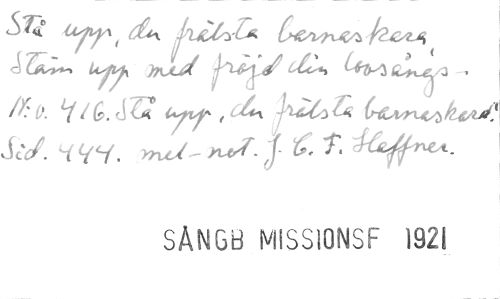 Stå upp, du frälsta barnaskara,
Stäm upp med fröjd din lovsångs-
N:o. 416. Stå upp, du frälsta barnaskara!
Sid. 444. mel-not. J. C. F. Haffner.
SÅNGB MISSIONSF 1921